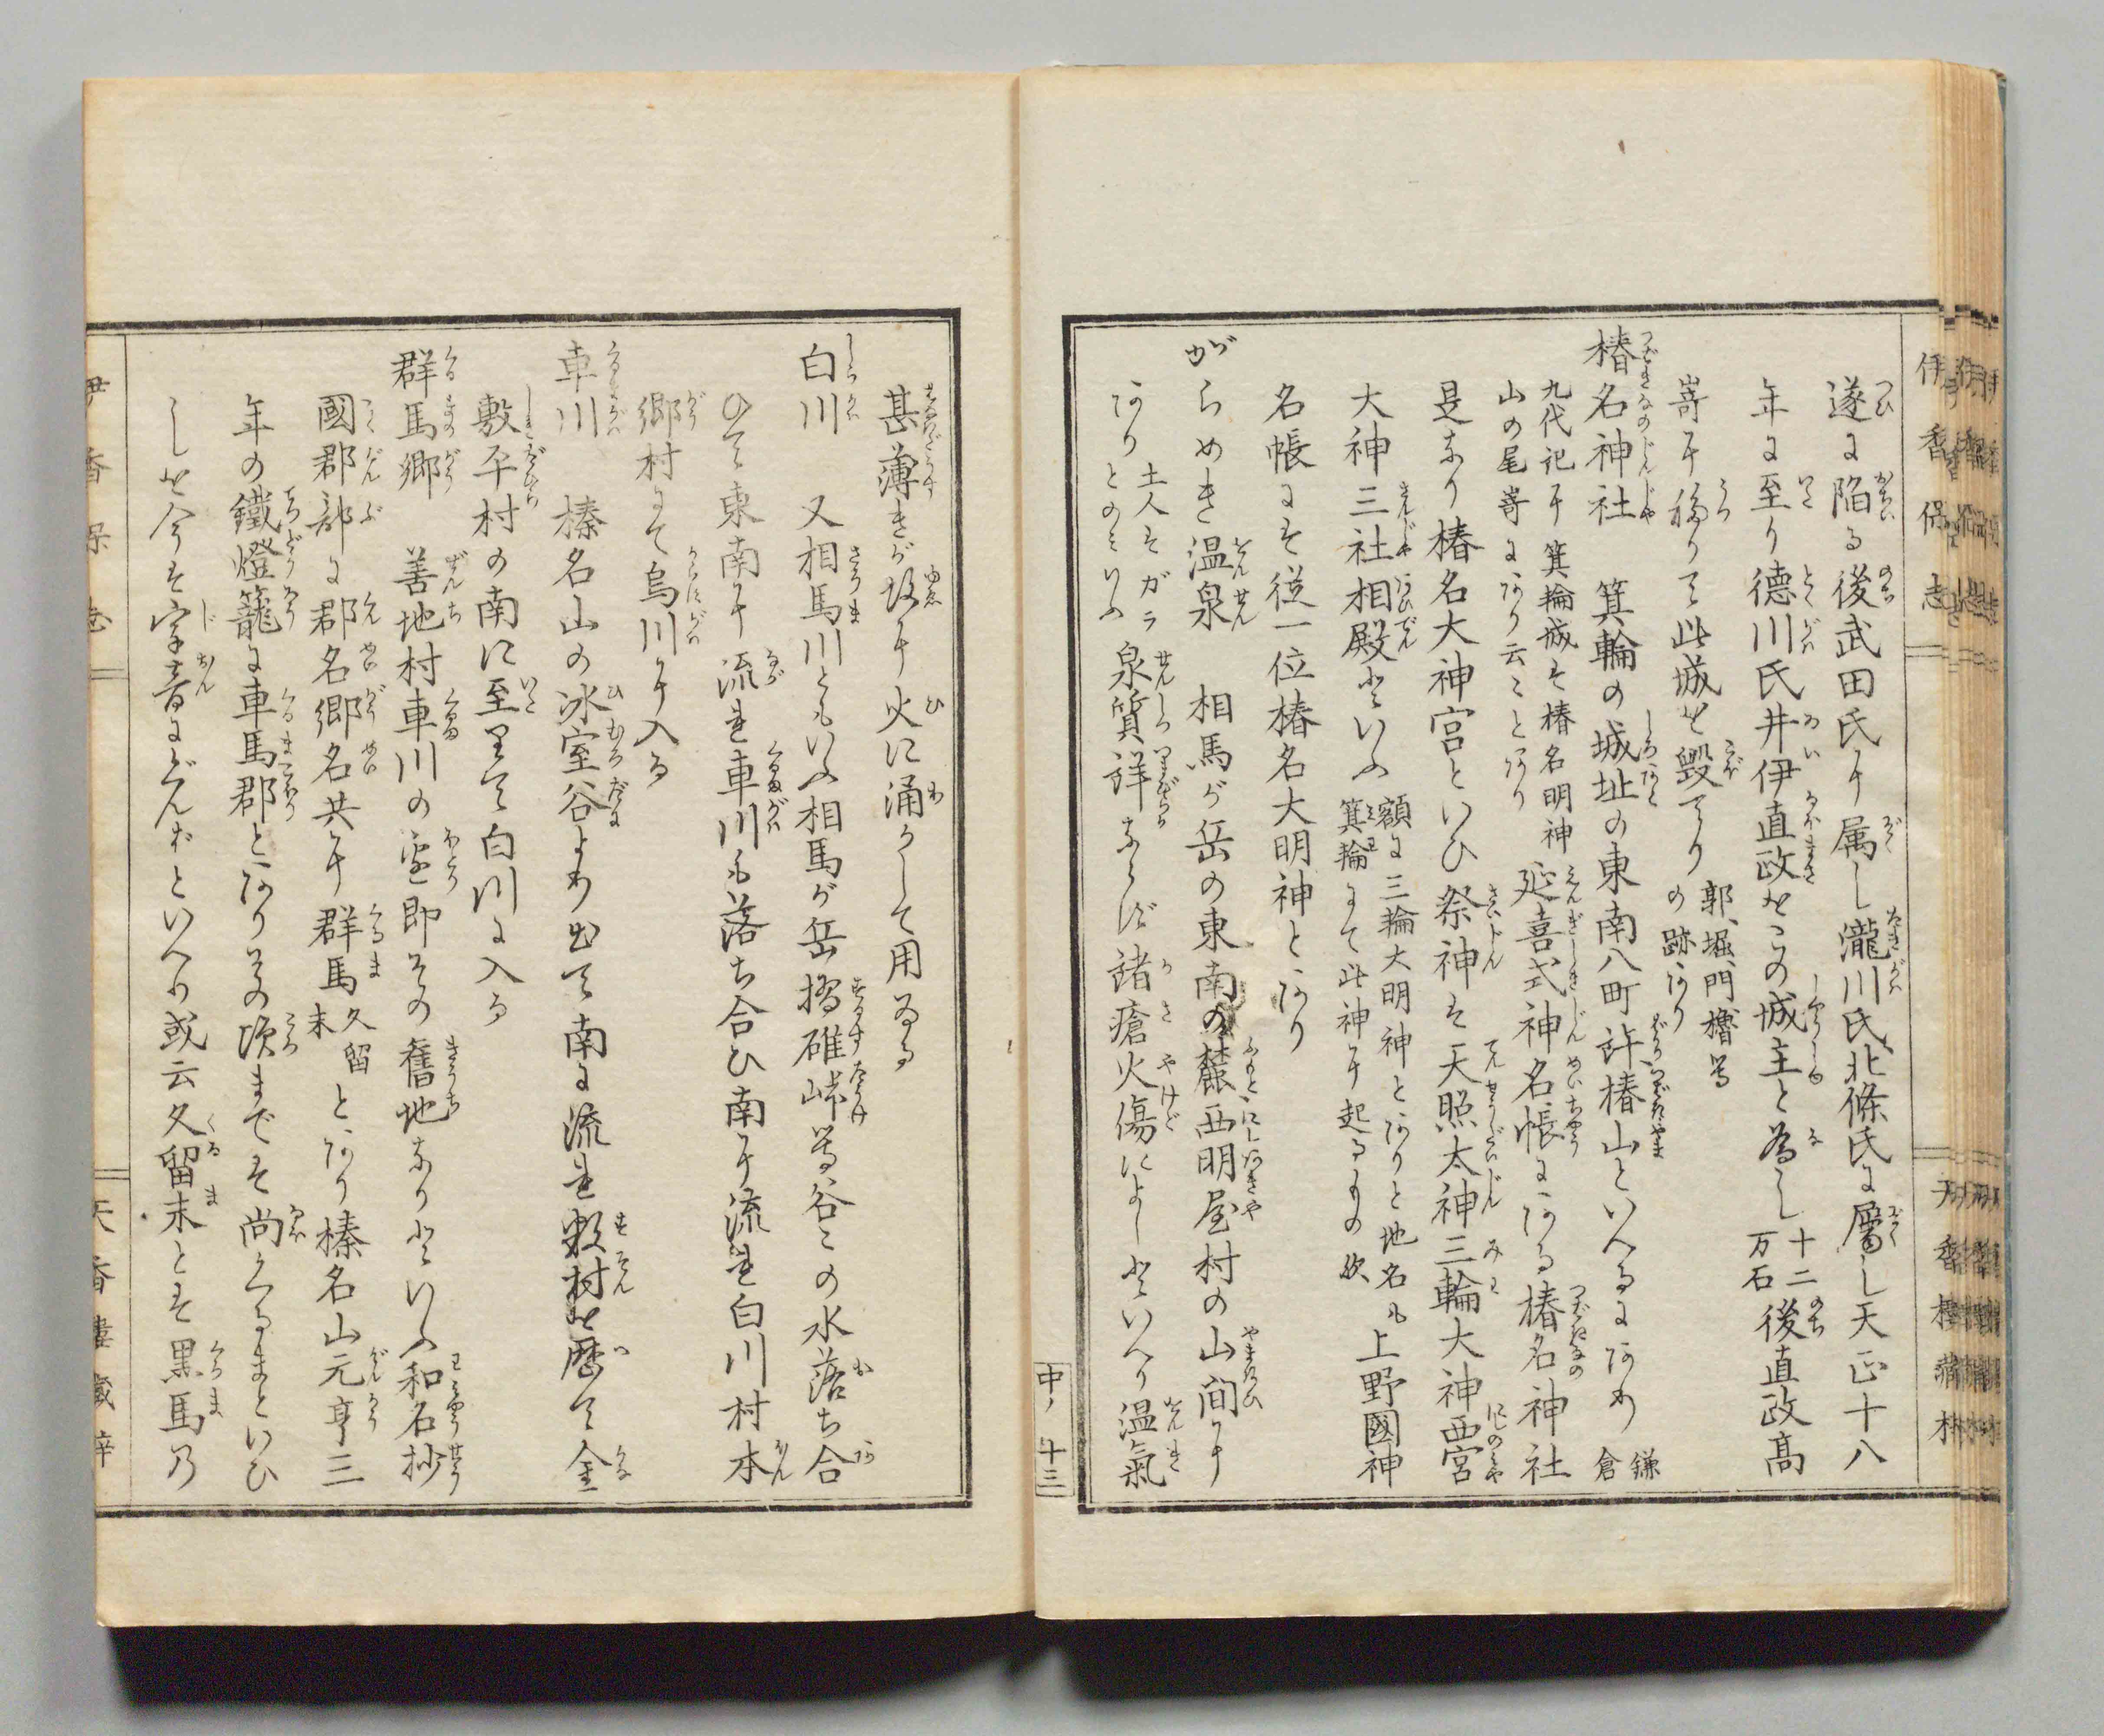 伊香保志
天香樓藏梓
遂に陷る後武田氏に属し瀧川氏北條氏に屬し天正十八
年に至り德川氏井伊直政をこの城主と為し十二万石後直政髙
嵜に移りて此城を毀てり郭、堀、門、櫓等の跡あり
椿名神社　箕輪の城址の東南八町許椿山といへるにあり鎌倉
九代記に箕輪城を椿名明神山の尾嵜にあり云ことあり延喜式神名帳にある椿名神社
是なり椿名大神宮といひ祭神を天照太神三輪大神西宮
大神三社相殿といふ額に三輪大明神とありと地名も箕輪にて此神に起るもの歟上野國神
名帳にを從一位椿名大明神とあり
がらめき温泉　相馬が岳の東南の麓西明屋村の山間に
あり土人をガラとのみいふ泉質詳ならず諸瘡火傷によしといへり温氣
中ノ十三
甚薄きが故に火に涌かして用ゐる
白川　又相馬川ともいふ相馬が岳摺碓峠等谷々の水落ち合
ひて東南に流れ車川も落ち合ひ南に流れ白川村本
郷村にて烏川に入る
車川　榛名山の冰室谷より出て南に流れ数村を歴て金
敷平村の南に至りて白川に入る
群馬郷　善地村車川の邊即その舊地なりといふ和名抄
國郡部に郡名郷名共に群馬久留末とあり榛名山元亨三
年の鐵燈籠に車馬郡とありその頃までを尚くるまといひ
しを今を字音にぐんまといへり或云久留末とを黒馬乃
伊香保志
天香樓藏梓